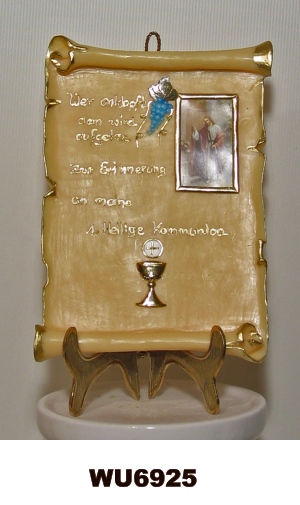 Wer anklopft
dem wird
aufgetan
Zur Erinnerung
an meine
1. Heilige Kommunion
WU6925